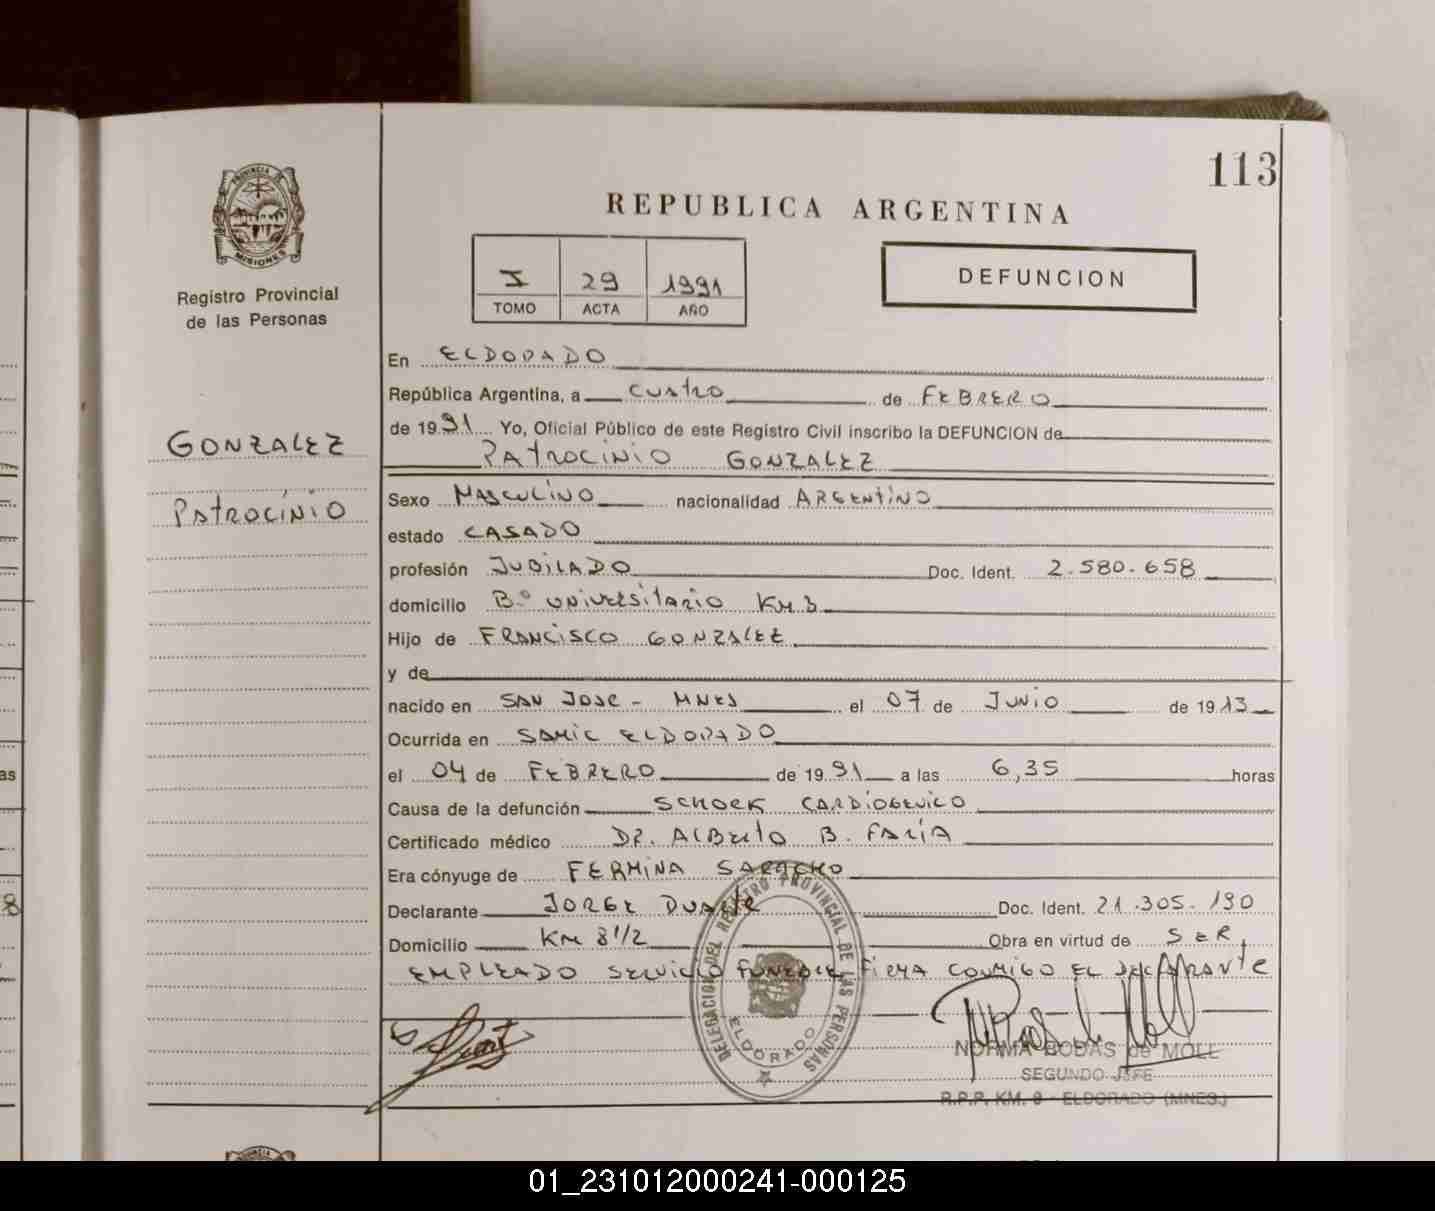 113
PROVINCIA DE
MISIONES
Registro Provincial
de las Personas
GONZALEZ
PATROCINIO
REPUBLICA ARGENTINA
I 29 1991
TOMO ACTA AÑO
DEFUNCION
En ELDORADO
República Argentina, a CUATRO de FEBRERO
de 1991 Yo, Oficial Público de este Registro Civil inscribo la DEFUNCION de
PATROCINIO GONZALEZ
Sexo MASCULINO nacionalidad ARGENTINO
estado CASADO
profesión JUBILADO Doc. Ident. 2.580.658
domicilio B.º UNIVERSITARIO KM 3
Hijo de FRANCISCO GONZALEZ
y de
nacido en SAN JOSE - MNES el 07 de JUNIO de 1913
Ocurrida en SAMIC ELDORADO
el 04 de FEBRERO de 1991 a las 6,35 horas
Causa de la defunción SCHOCK CARDIOGENICO
Certificado médico DR. ALBERTO B. FARIA
Era cónyuge de FERMINA SARACHO
Declarante JORGE DUARTE Doc. Ident. 21.305.190
Domicilio KM 8 1/2 Obra en virtud de SER
EMPLEADO SERVICIO FUNEBRE FIRMA CONMIGO EL DECLARANTE
DELEGACION DEL REGISTRO PROVINCIAL DE LAS PERSONAS
ELDORADO
NORMA BODAS de MOLL
SEGUNDO JEFE
R.P.P. KM. 8 - ELDORADO (MNES.)
01_231012000241-000125